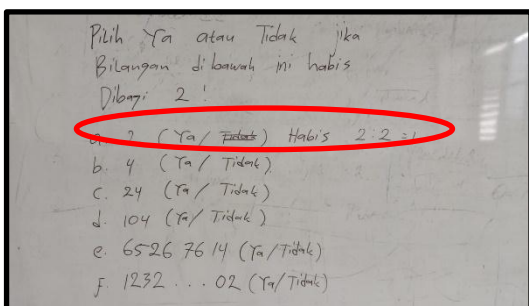 Pilih Ya atau Tidak jika
Bilangan di bawah ini habis
Dibagi 2 !
a. 2 (Ya/ Tidak) Habis 2:2 = 1
b. 4 (Ya / Tidak)
c. 24 (Ya / Tidak)
d. 104 (Ya/ Tidak)
e. 6526 76 14 (Ya/Tidak)
f. 1232 . . . 02 (Ya/Tidak)